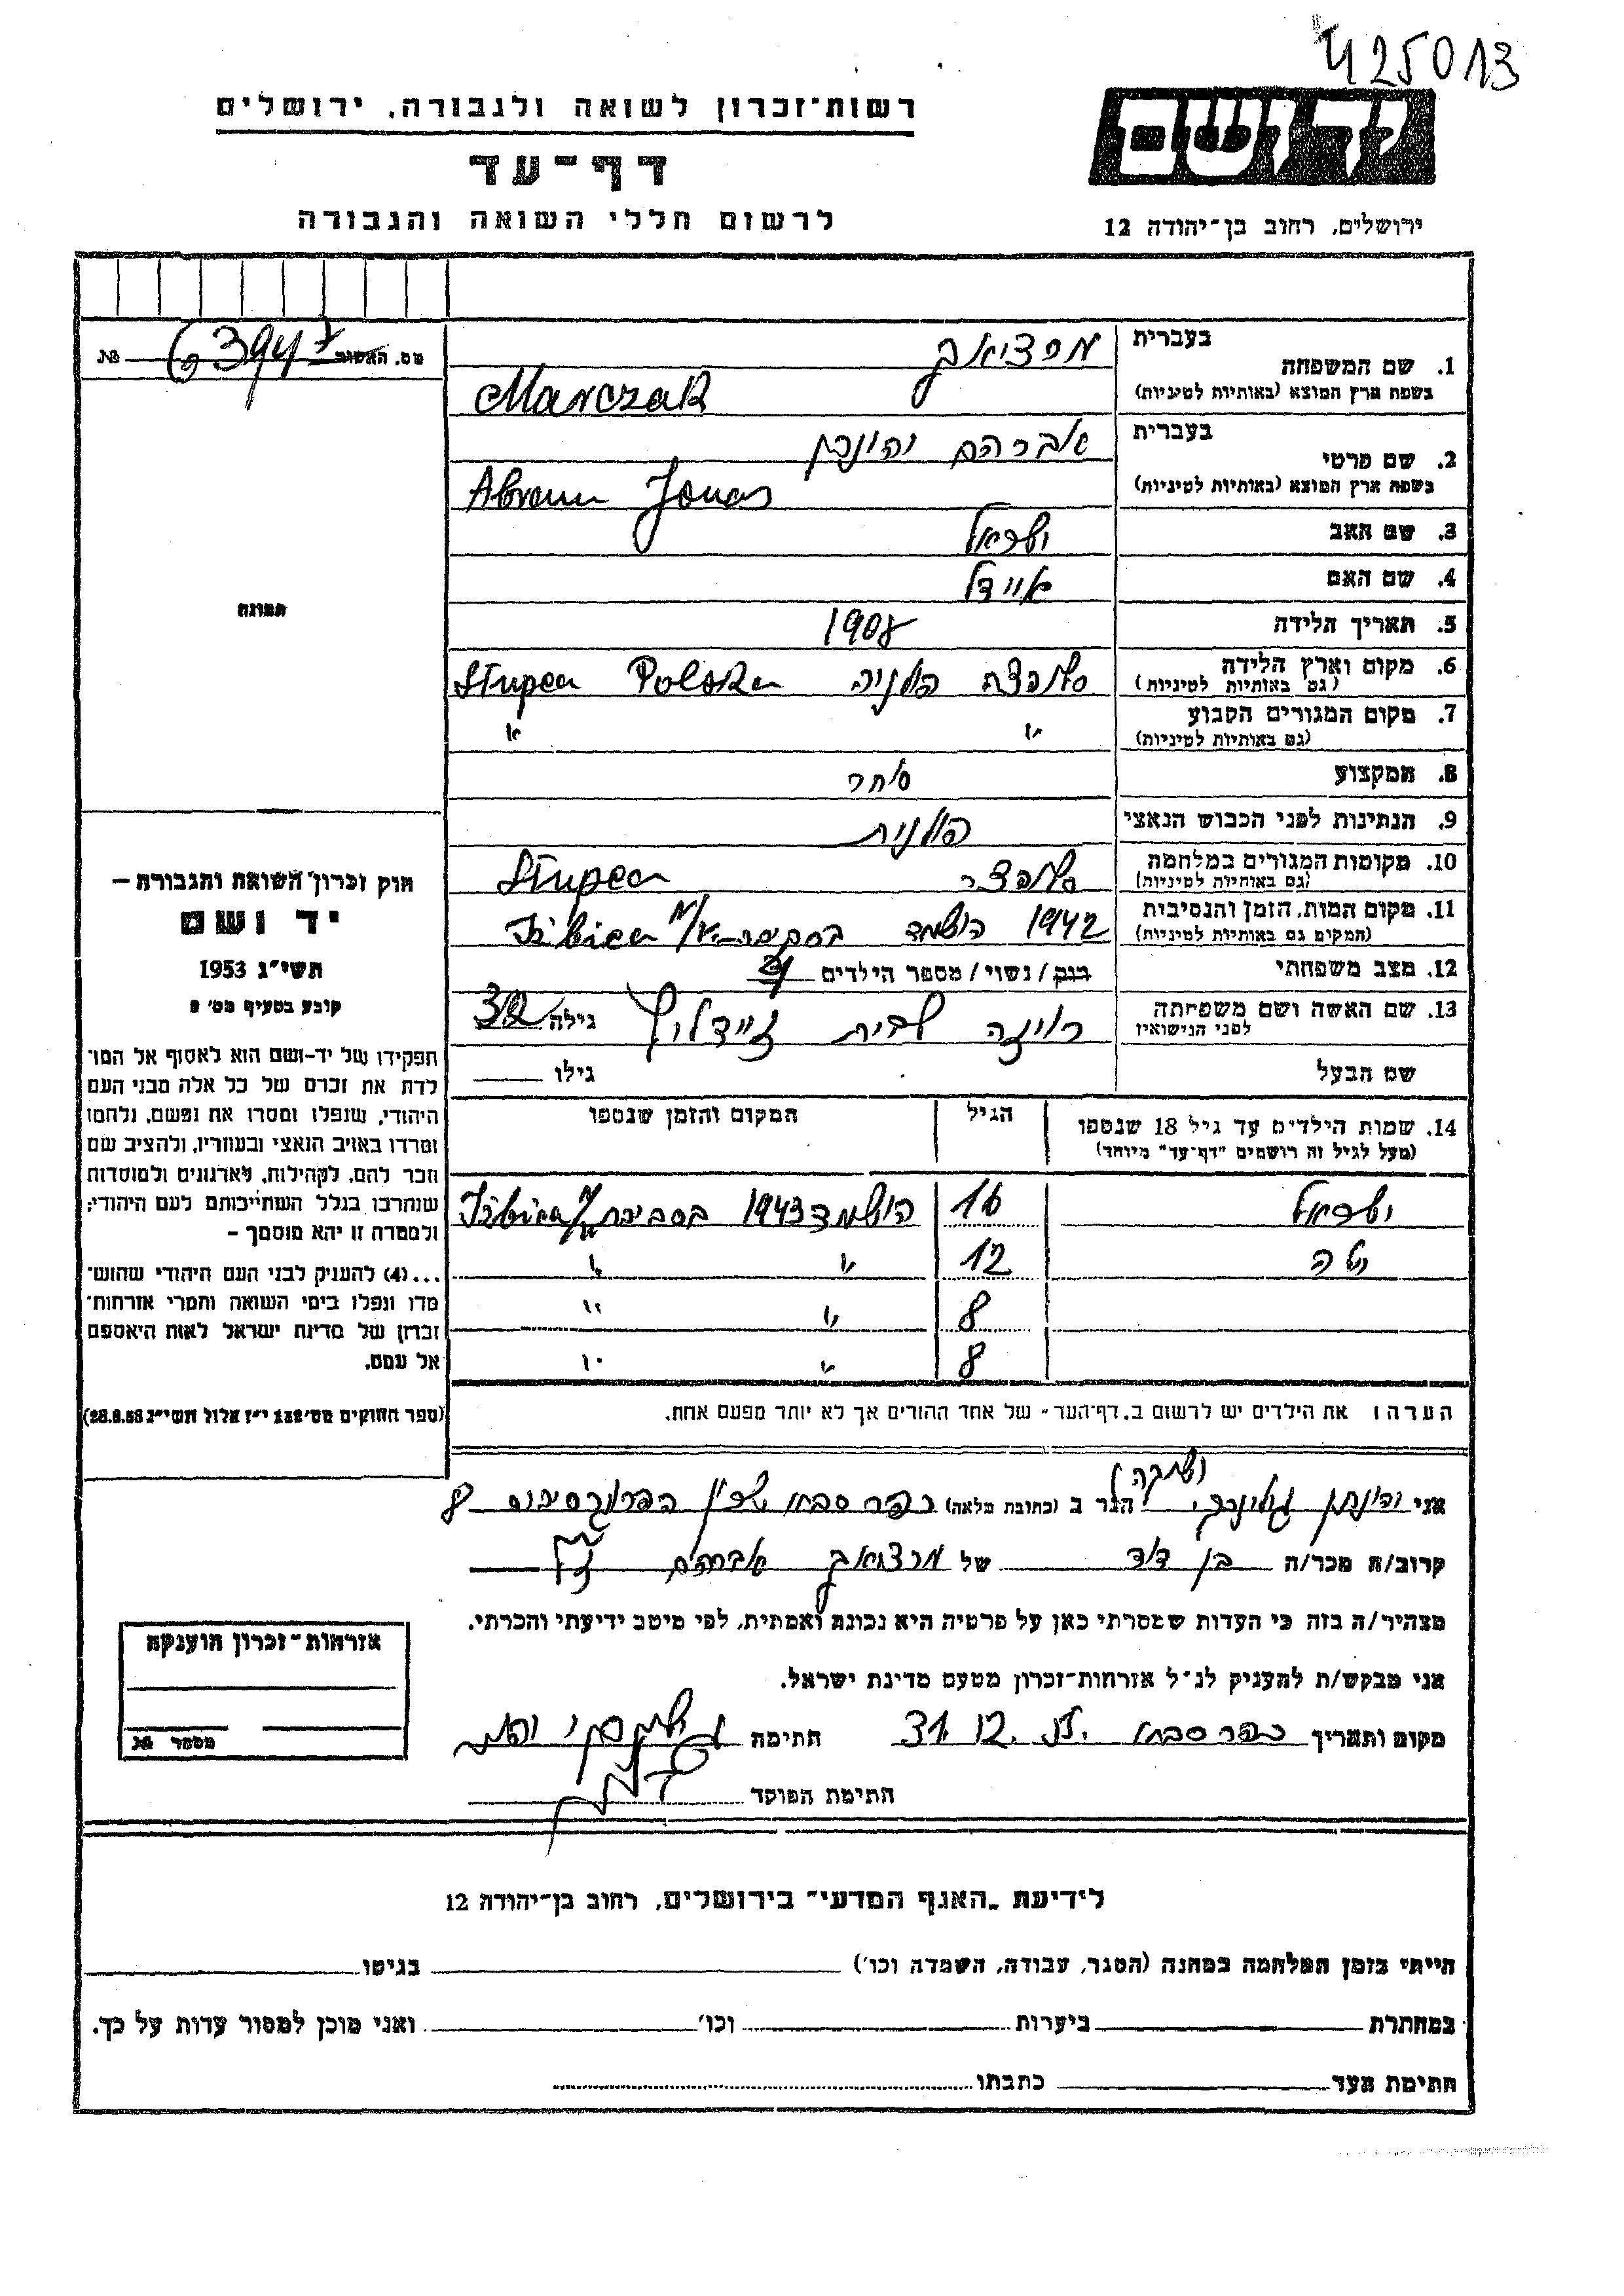 425013
יד ושם
ירושלים, רחוב בן־יהודה 12
רשות־זכרון לשואה ולגבורה, ירושלים
דף־עד
לרשום חללי השואה והגבורה
מס. האשור 63947 №
תמונה
חוק זכרון השואה והגבורה —
יד ושם
תשי״ג 1953
קובע בסעיף מס׳ 2
תפקידו של יד-ושם הוא לאסוף אל המו־
לדת את זכרם של כל אלה מבני העם
היהודי, שנפלו ומסרו את נפשם, נלחמו
ומרדו באויב הנאצי ובעוזריו, ולהציב שם
וזכר להם, לקהילות, לארגונים ולמוסדות
שנחרבו בגלל השתייכותם לעם היהודי;
ולמטרה זו יהא מוסמך —
...(4) להעניק לבני העם היהודי שהוש־
מדו ונפלו בימי השואה והמרי אזרחות־
זכרון של מדינת ישראל לאות היאספם
אל עמם.
(ספר החוקים מס׳ 132 י״ז אלול תשי״ג 28.8.53)
1. שם המשפחה בעברית מרציאק
בשפת ארץ המוצא (באותיות לטיניות) Marczak
2. שם פרטי בעברית אברהם יהונתן
בשפת ארץ המוצא (באותיות לטיניות) Abram Jonas
3. שם האב ישראל
4. שם האם איידל
5. תאריך הלידה 1908
6. מקום וארץ הלידה סלופצה פולניה Słupca Polska
(גם באותיות לטיניות)
7. מקום המגורים הקבוע " "
(גם באותיות לטיניות)
8. המקצוע סוחר
9. הנתינות לפני הכבוש הנאצי פולנית
10. מקומות המגורים במלחמה סלופצה Słupca
(גם באותיות לטיניות)
11. מקום המות, הזמן והנסיבות 1942 הושמד בסביבת Izbica
(המקום גם באותיות לטיניות)
12. מצב משפחתי רוק / נשוי / מספר הילדים 4
13. שם האשה ושם משפחתה לפני הנישואין רויזה לבית זיידלוף גילה 32
שם הבעל גילו
14. שמות הילדים עד גיל 18 שנספו הגיל המקום והזמן שנספו
(מעל לגיל זה רושמים "דף־עד" מיוחד)
ישראל 16 הושמד 1943 בסביבת Izbica
12 " "
8 " "
8 " "
הערה: את הילדים יש לרשום ב„דף־העד" של אחד ההורים אך לא יותר מפעם אחת.
אני יהונתן הגר ב (כתובת מלאה) כפר סבא שכון הפרוגרסיבים 8
קרוב/ה מכר/ה בן דוד של מרציאק אברהם ז״ל
מצהיר/ה בזה כי העדות שמסרתי כאן על פרטיה היא נכונה ואמתית, לפי מיטב ידיעתי והכרתי.
אני מבקש/ת להעניק לנ״ל אזרחות־זכרון מטעם מדינת ישראל.
מקום ותאריך כפר סבא 31.12. חתימה
חתימת הפוקד
אזרחות־זכרון הוענקה
מספר №
לידיעת „האגף המדעי" בירושלים, רחוב בן־יהודה 12
הייתי בזמן המלחמה במחנה (הסגר, עבודה, השמדה וכו׳) בגיטו
במחתרת ביערות וכו׳ ואני מוכן למסור עדות על כך.
חתימת העד כתבתו